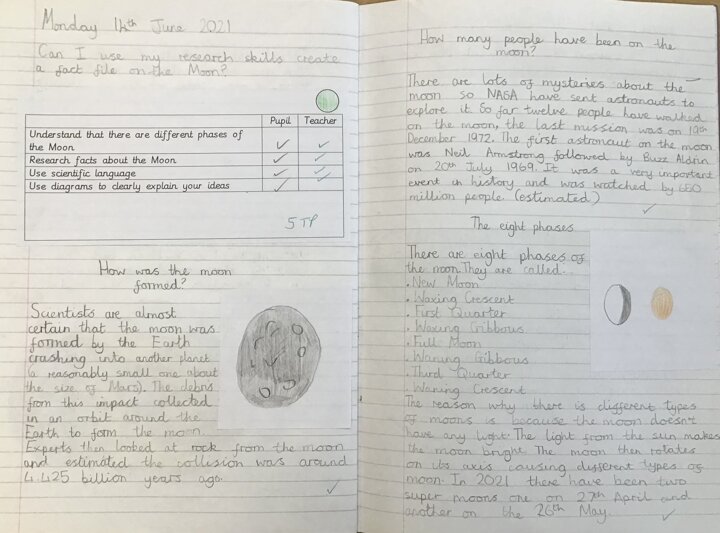 Monday 14th June 2021
Can I use my research skills create
a fact file on the Moon?
Pupil Teacher
Understand that there are different phases of
the Moon
Research facts about the Moon
Use scientific language
Use diagrams to clearly explain your ideas
5 TP
How was the moon
formed?
Scientists are almost
certain that the moon was
formed by the Earth
crashing into another planet
(a reasonably small one about
the size of Mars). The debris
from this impact collected
in an orbit around the
Earth to form the moon.
Experts then looked at rock from the moon
and estimated the collision was around
4.425 billion years ago.
How many people have been on the
moon?
There are lots of mysteries about the
moon so NASA have sent astronauts to
explore it. So far twelve people have walked
on the moon, the last mission was on 19th
December 1972. The first astronaut on the moon
was Neil Armstrong followed by Buzz Aldrin
on 20th July 1969. It was a very important
event in history and was watched by 650
million people (estimated)
The eight phases
There are eight phases of
the moon. They are called...
. New Moon
. Waxing Crescent
. First Quarter
. Waxing Gibbous
. Full Moon
. Waning Gibbous
. Third Quarter
. Waning Crescent
The reason why there is different types
of moons is because the moon doesn't
have any light. The light from the sun makes
the moon bright. The moon then rotates
on its axis causing different types of
moon. In 2021 there have been two
super moons one on 27th April and
another on the 26th May.